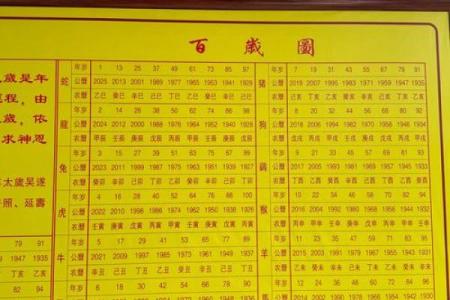 百歲圖
歲是年
程，由
歲，依
求神恩
太歲吳遂
照、延壽
79 91
1947 1935
丁亥 乙亥
蛇
年岁 1 13 25 37 49 61 73 85 97
公曆 2025 2013 2001 1989 1977 1965 1953 1941 1929
农曆 乙巳 癸巳 辛巳 己巳 丁巳 乙巳 癸巳 辛巳 己巳
龍
年岁 2 14 26 38 50 62 74 86 98
公曆 2024 2012 2000 1988 1976 1964 1952 1940 1928
农曆 甲辰 壬辰 庚辰 戊辰 丙辰 甲辰 壬辰 庚辰 戊辰
兔
年岁 3 15 27 39 51 63 75 87 99
公曆 2023 2011 1999 1987 1975 1963 1951 1939 1927
农曆 癸卯 辛卯 己卯 丁卯 乙卯 癸卯 辛卯 己卯 丁卯
虎
年岁 4 16 28 40 52 64 76 88 100
公曆 2022 2010 1998 1986 1974 1962 1950 1938 1926
农曆 壬寅 庚寅 戊寅 丙寅 甲寅 壬寅 庚寅 戊寅 丙寅
牛
年岁 5 17 29 41 53 65 77 89
公曆 2021 2009 1997 1985 1973 1961 1949 1937
农曆 辛丑 己丑 丁丑 乙丑 癸丑 辛丑 己丑 丁丑
年岁 6 18 30 42 54 66 78 90
豬
年岁 7 19 31 43 55 67 79 91
公曆 2019 2007 1995 1983 1971 1959 1947 1935
农曆 己亥 丁亥 乙亥 癸亥 辛亥 己亥 丁亥 乙亥
狗
年岁 8 20 32 44 56 68 80 92
公曆 2018 2006 1994 1982 1970 1958 1946 1934
农曆 戊戌 丙戌 甲戌 壬戌 庚戌 戊戌 丙戌 甲戌
鷄
年岁 9 21 33 45 57 69 81 93
公曆 2017 2005 1993 1981 1969 1957 1945 1933
农曆 丁酉 乙酉 癸酉 辛酉 己酉 丁酉 乙酉 癸酉
猴
年岁 10 22 34 46 58 70 82 94
公曆 2016 2004 1992 1980 1968 1956 1944 1932
农曆 丙申 甲申 壬申 庚申 戊申 丙申 甲申 壬申
羊
年岁 11 23 35 47 59 71 83 95
公曆 2015 2003 1991 1979 1967 1955 1943 1931
农曆 乙未 癸未 辛未 己未 丁未 乙未 癸未 辛未